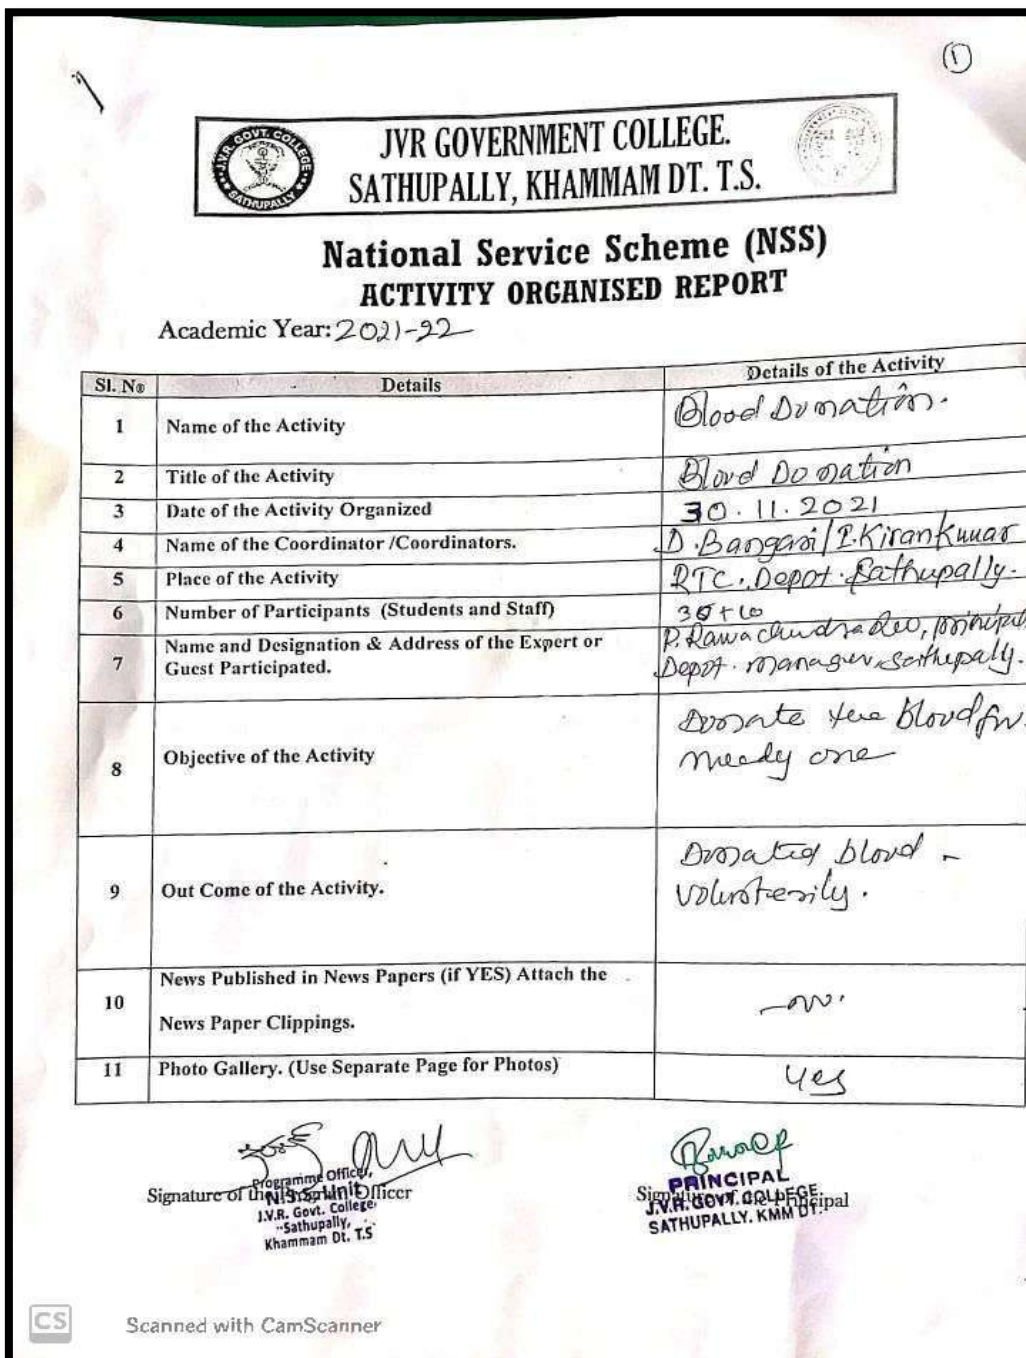 1
J.V.R. GOVT. COLLEGE
SATHUPALLY
JVR GOVERNMENT COLLEGE.
SATHUPALLY, KHAMMAM DT. T.S.
National Service Scheme (NSS)
ACTIVITY ORGANISED REPORT
Academic Year: 2021-22
Sl. No Details Details of the Activity
1 Name of the Activity Blood Donation.
2 Title of the Activity Blood Donation
3 Date of the Activity Organized 30.11.2021
4 Name of the Coordinator /Coordinators. D. Bangari/P. Kirankumar
5 Place of the Activity RTC. Depot. Sathupally.
6 Number of Participants (Students and Staff) 35+10
7 Name and Designation & Address of the Expert or P. Ramachandra Rao, principal
Guest Participated. Depot. manager, Sathupally.
8 Objective of the Activity Donate the Blood for
needy one
9 Out Come of the Activity. Donated blood -
volunterily.
10 News Published in News Papers (if YES) Attach the
News Paper Clippings. -no.
11 Photo Gallery. (Use Separate Page for Photos) Yes
Signature of the Program Officer
Programme Officer,
N.S.S. Unit
J.V.R. Govt. College,
Sathupally,
Khammam Dt. T.S
Signature of the Principal
PRINCIPAL
J.V.R. GOVT. COLLEGE
SATHUPALLY. KMM DT.
CS Scanned with CamScanner